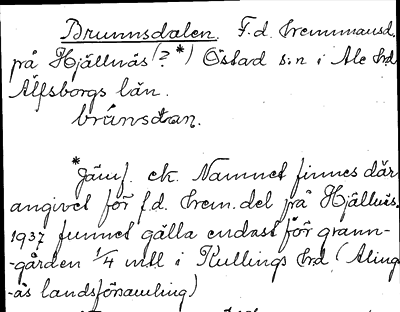 Brunnsdalen. F.d. hemmansd.
på Hjällnäs (?*) Östad s:n i Ale hd
Älfsborgs län.
brúnsdan.
*Jämf. ek. Namnet finnes där
angivet för f.d. hem.del på Hjällnäs.
1937 funnet gälla endast för grann-
-gården 1/4 mtl i Kullings hd (Aling-
-ås landsförsamling)